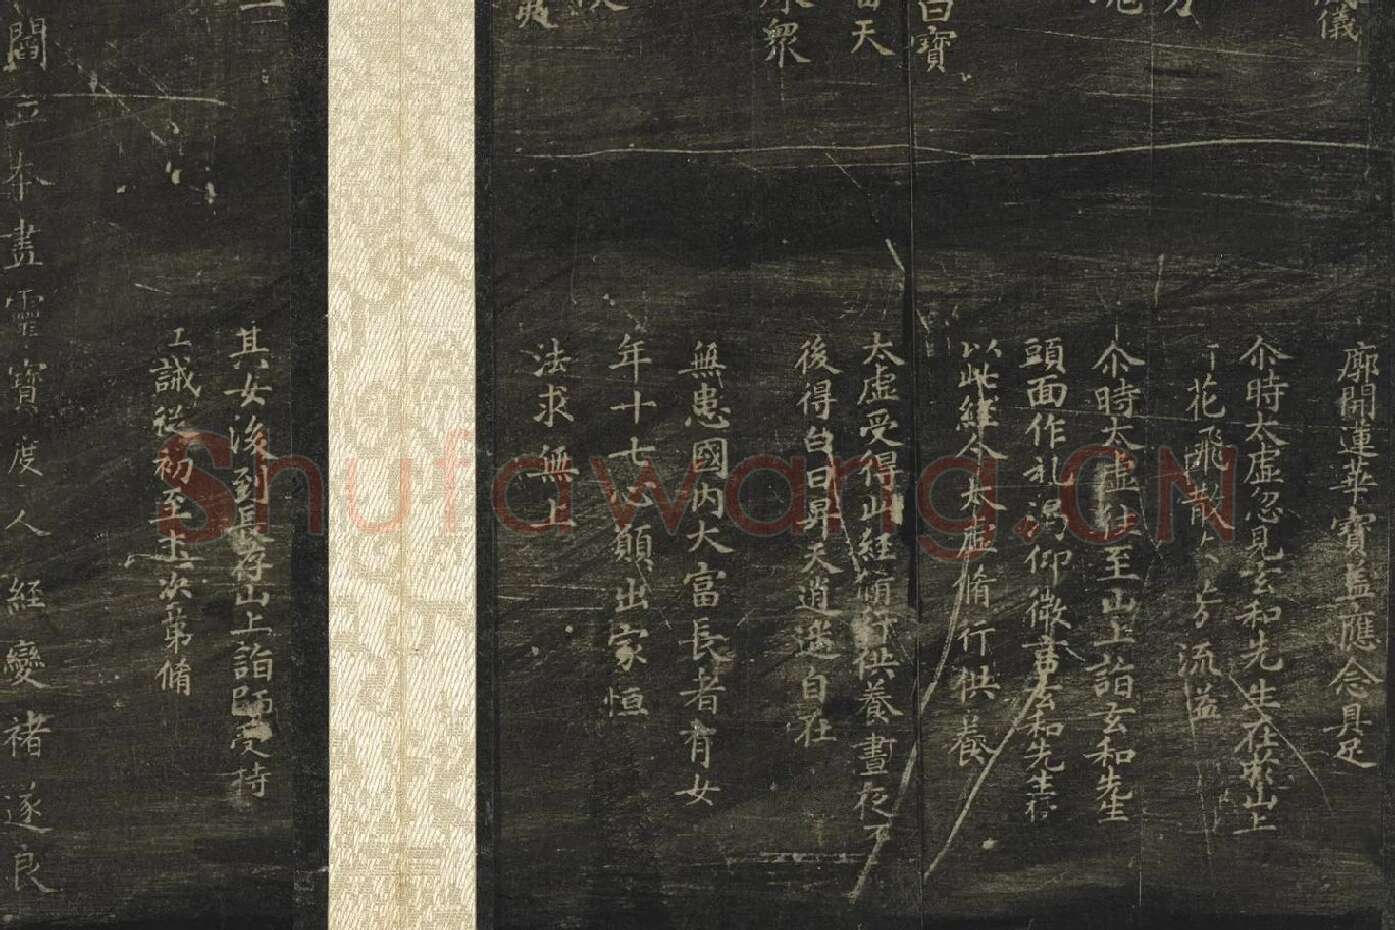 儀
廓開蓮華寶蓋應念具足
尒時太虛忽見玄和先生在崇山上
花飛散 流溢
尒時太虛往至山上詣玄和先生
頭面作礼渴仰徵 玄和先生
以此經令太虛脩行供養
白寶
太虛受得此經 行供養晝夜不
天
後得白日昇天逍遥自在
眾
無患國內大富長者有女
年十七 願出家恒
法求無上
其女後到長存山上詣師受持
誠從初至 次第脩
閻立本畫靈寶度人經變褚遂良
Shufawang.CN